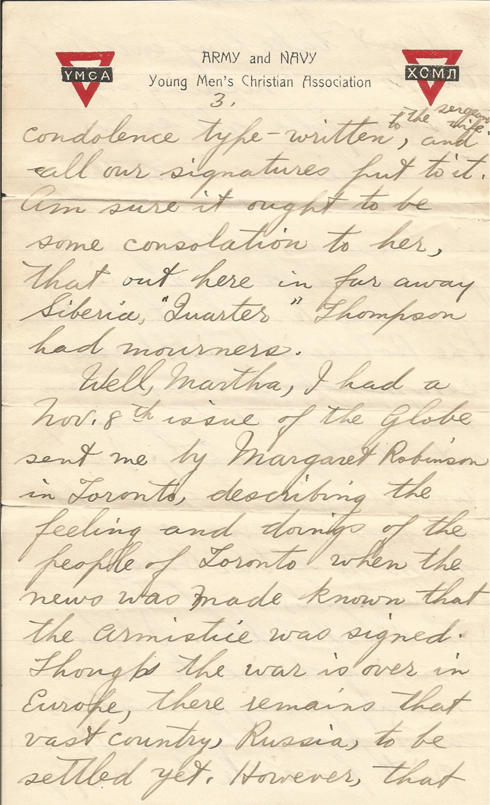 ARMY and NAVY
YMCA
ХСМЛ
Young Men's Christian Association
3.
to the sergeant's wife
condolence type-written, and
all our signatures put to it.
Am sure it ought to be
some consolation to her,
that out here in far away
Siberia, "Quarter" Thompson
had mourners.
Well, Martha, I had a
Nov. 8th issue of the Globe
sent me by Margaret Robinson
in Toronto, describing the
feeling and doings of the
people of Toronto when the
news was made known that
the armistice was signed.
Though the war is over in
Europe, there remains that
vast country, Russia, to be
settled yet. However, that